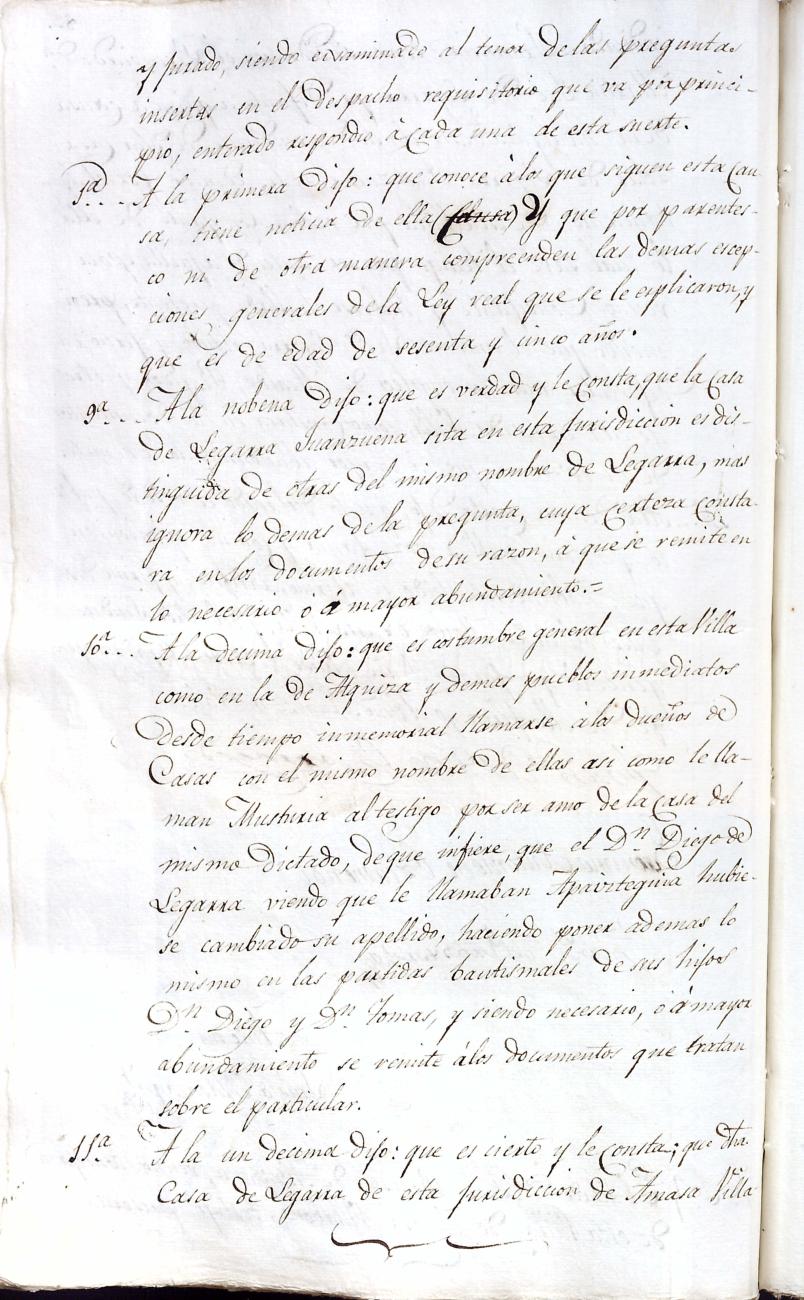 y jurado, siendo exsaminado al tenor de las preguntas
insertas en el despacho requisitorio que va por princi-
pio, enterado respondió à cada una de esta suerte.
1ª.. A la primera dijo: que conoce àlos que siguen esta Cau
sa, tiene noticia de ella (Causa) Y que por parentes-
co ni de otra manera compreenden las demas escep-
ciones generales dela Ley real que se le esplicaron, y
que es de edad de sesenta y cinco años.
9ª... Ala nobena dijo: que es verdad y le consta, que la Casa
de Legarra Juanzuena sita en esta Jurisdiccion es dis-
tinguida de otras del mismo nombre de Legarra, mas
ignora lo demas dela pregunta, cuya certeza Consta-
ra en los documentos de su razon, à que se remite en
lo necesario o á mayor abundamiento.=
10ª.. A la decima dijo: que es costumbre general en esta Villa
como en la de Alquiza y demas pueblos inmediatos
desde tiempo inmemorial llamarse à los dueños de
Casas con el mismo nombre de ellas asi como le lla-
man Musturia al testigo por ser amo de la Casa del
mismo dictado, de que infiere, que el Dn. Diego de
Legarra viendo que le llamaban Apaizteguia hubie-
se cambiado su apellido, haciendo poner ademas lo
mismo en las partidas bautismales de sus hijos
Dn. Diego y Dn. Tomas, y siendo necesario, o á mayor
abundamiento se remite álos documentos que tratan
sobre el particular.
11ª A la un decima dijo: que es cierto y le Consta; que dha
Casa de Legarra de esta Jurisdiccion de Amasa Villa